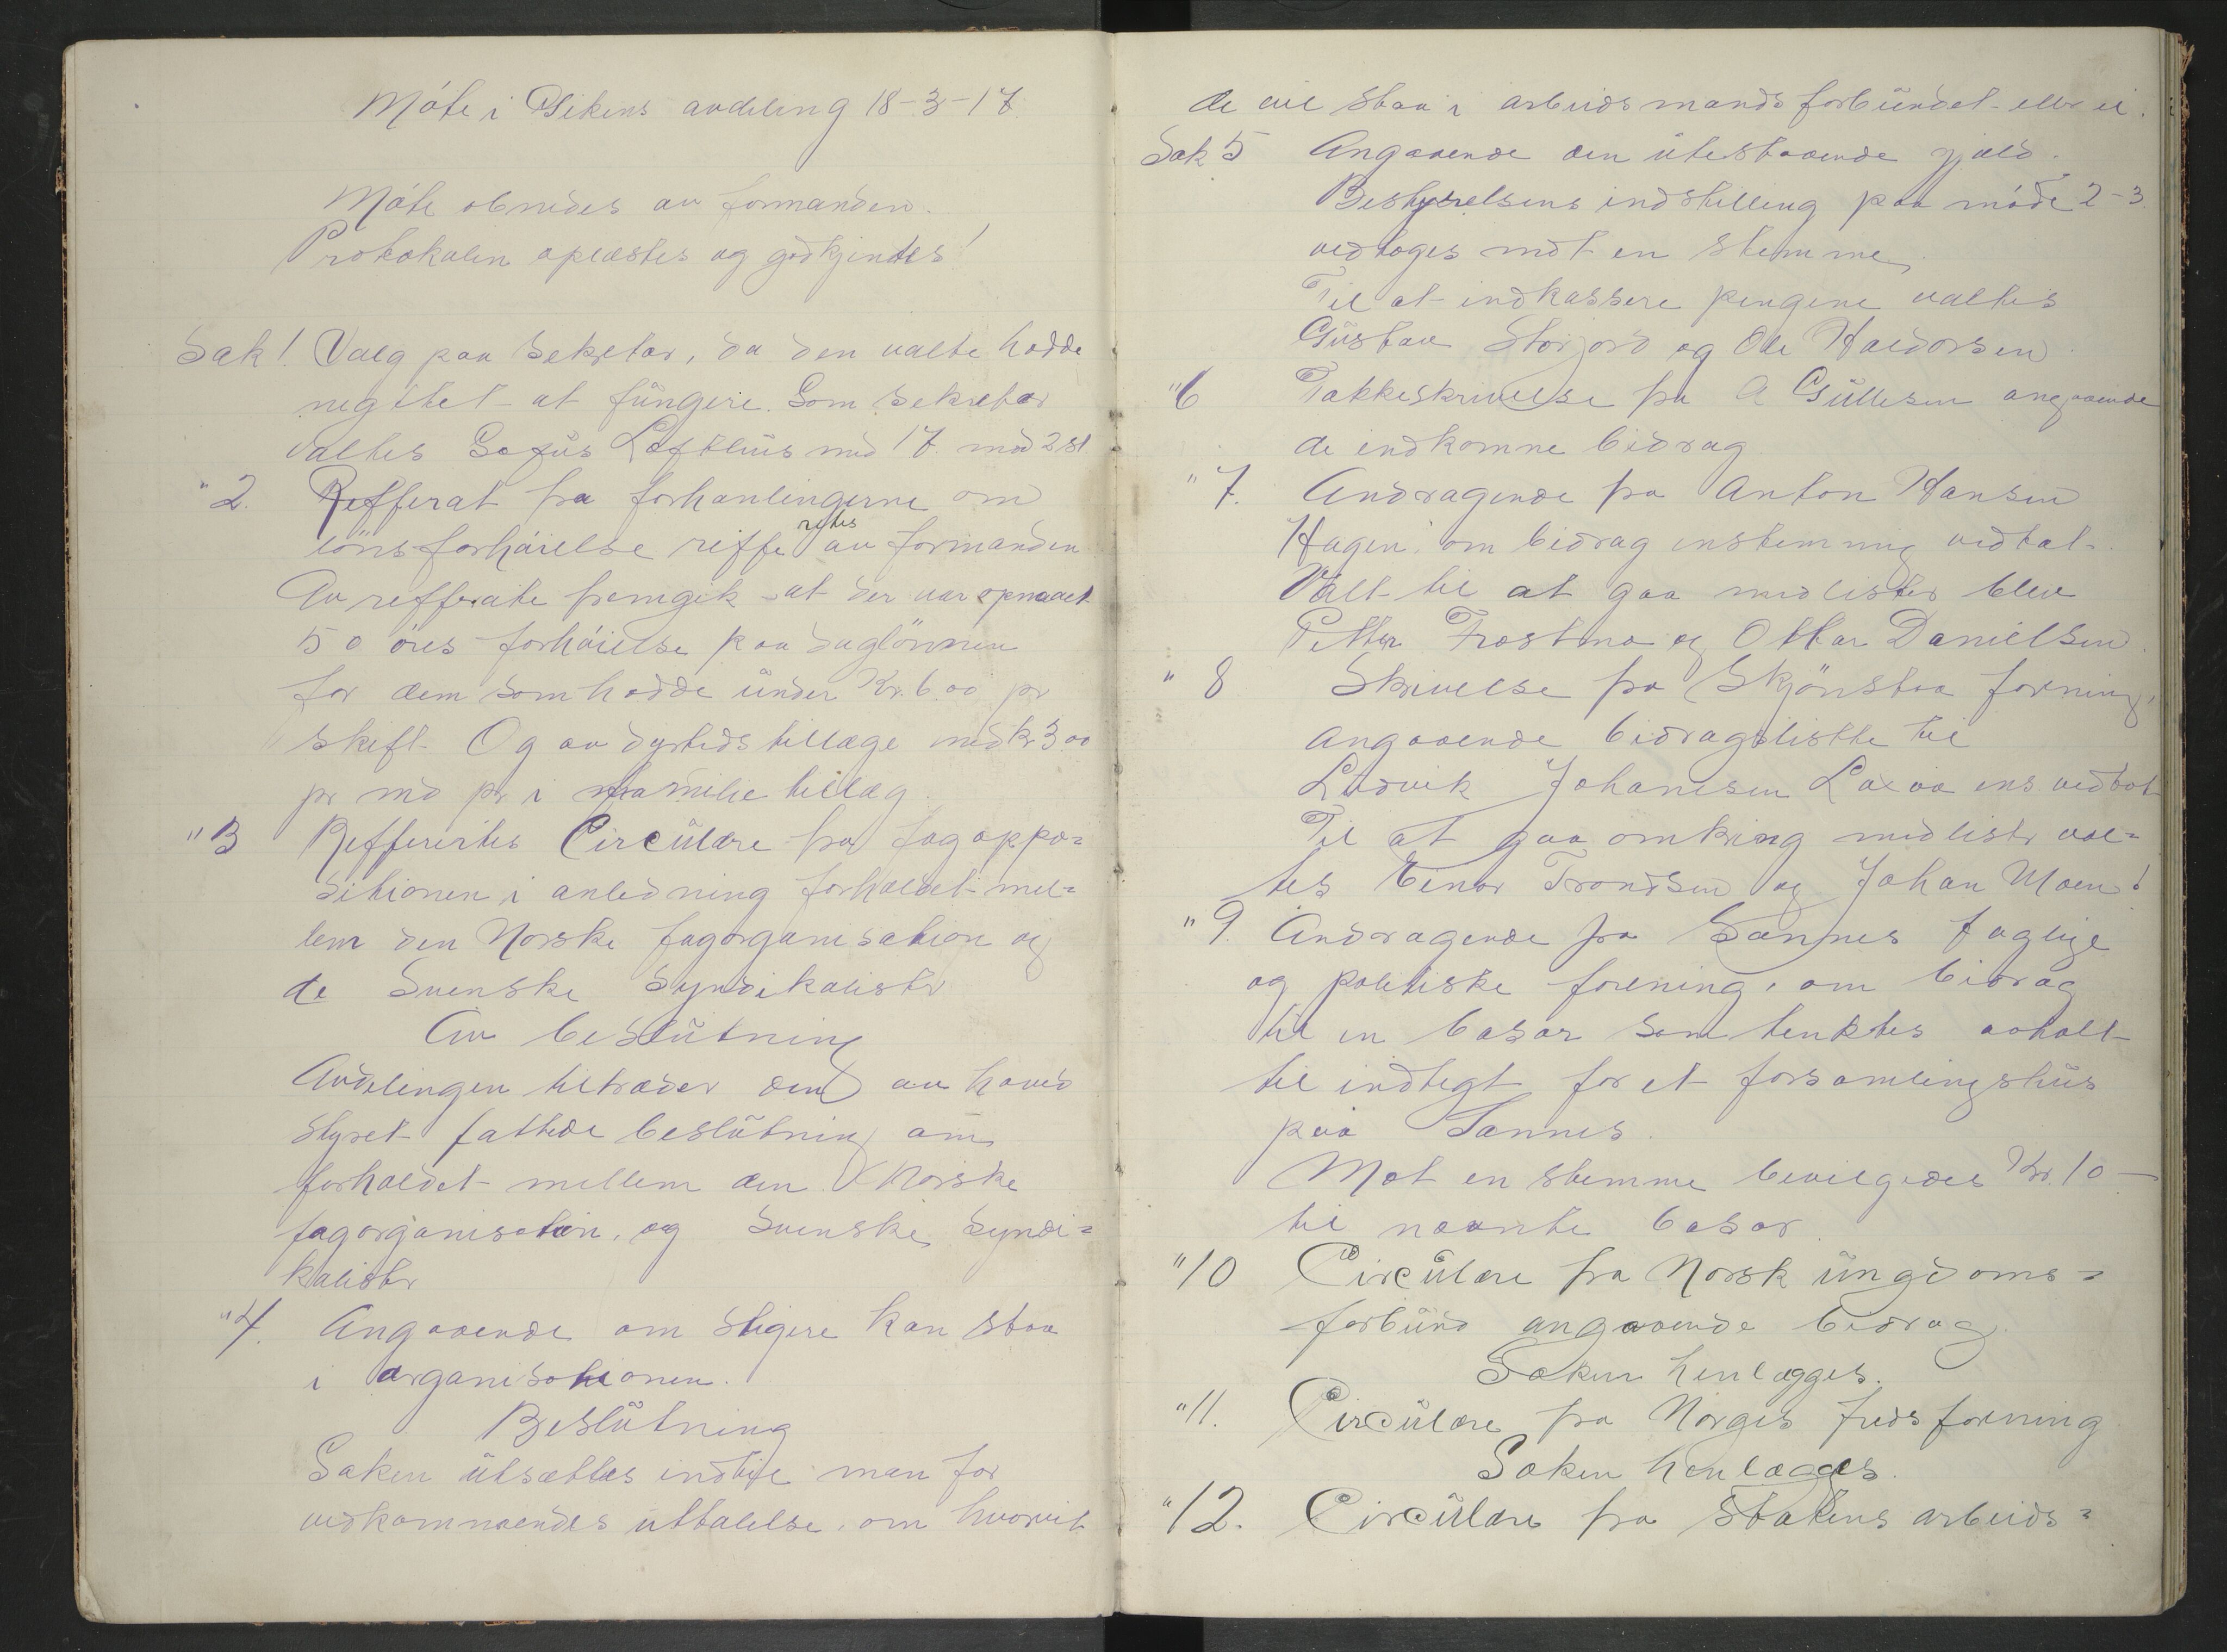 Møte i Gikens avdeling 18-3-17.
Møte obnedes av formanden.
Protokolen oplæstes og godkjentes!
Sak 1. Valg paa Sekretær, da den valte hadde
negttet at fungere. Som sekretær
valtes Sofus Lofthus med 17 mod 2 st
" 2. Refferat fra forhanlingerne om
lönsforhöielse reffe rertes av formanden
Av refferate fremgik at der var opnaaet
50 öres forhöielse paa daglönnen
for dem som hadde under Kr. 6.00 pr
skift. Og av dyrtidstillæge med kr 3 00
pr md pr i familie tillæg.
" 3 Refferertes Circulære fra fagoppo=
sitionen i anledning forholdet mel=
lem den Norske fagorganisation og
de Svenske Syndikalister
Av beslutning
Avdelingen tiltræder den av hoved
styret fattede beslutning om
forholdet mellem den Norske
fagorganisation, og Svenske Syndi=
kalister
" 4. Angaaende om stigere kan staa
i organisationen.
Beslutning
Saken utsættes indtil man for
vedkommendes uttalelse, om hvorvit
de vil staa i arbeidsmandsforbundet eller ei.
Sak 5 Angaaende den utestaaende gjæld.
Bestyrelsens indstilling paa møde 2-3.
vedtoges mot en stemme,
Til at indkassere pengene valtes
Gustav Storjord og Ole Haldorsen.
" 6 Takkeskrivelse fra A Gullesen angaaende
de indkomne bidrag
" 7. Andragende fra Anton Hansen
Hagen, om bidrag enstemmig vedtat.
Valt til at gaa med lister blev
Petter Frostmo og Ottar Danielsen.
" 8 Skrivelse fra Skjönstaa forning,
angaaende bidragslistte til
Ludvik Johanesen Laxaa ens. vedtat
Til at gaa omkring med lister val=
tes Einar Trondsen og Johan Moen!
" 9. Andragende fra Sannes faglige
og politiske forening, om bidrag
til en basar som tenktes avholt
til indtegt for et forsamlingshus
paa Sannes.
Mot en stemme bevilgedes Kr. 10 —
til nævnte basar.
" 10 Circulære fra Norsk ungdoms=
forbund angaaende bidrag.
Saken henlægges.
" 11. Circulære fra Norges fredsforning
Saken henlægges.
" 12. Circulære fra Statens arbeids=